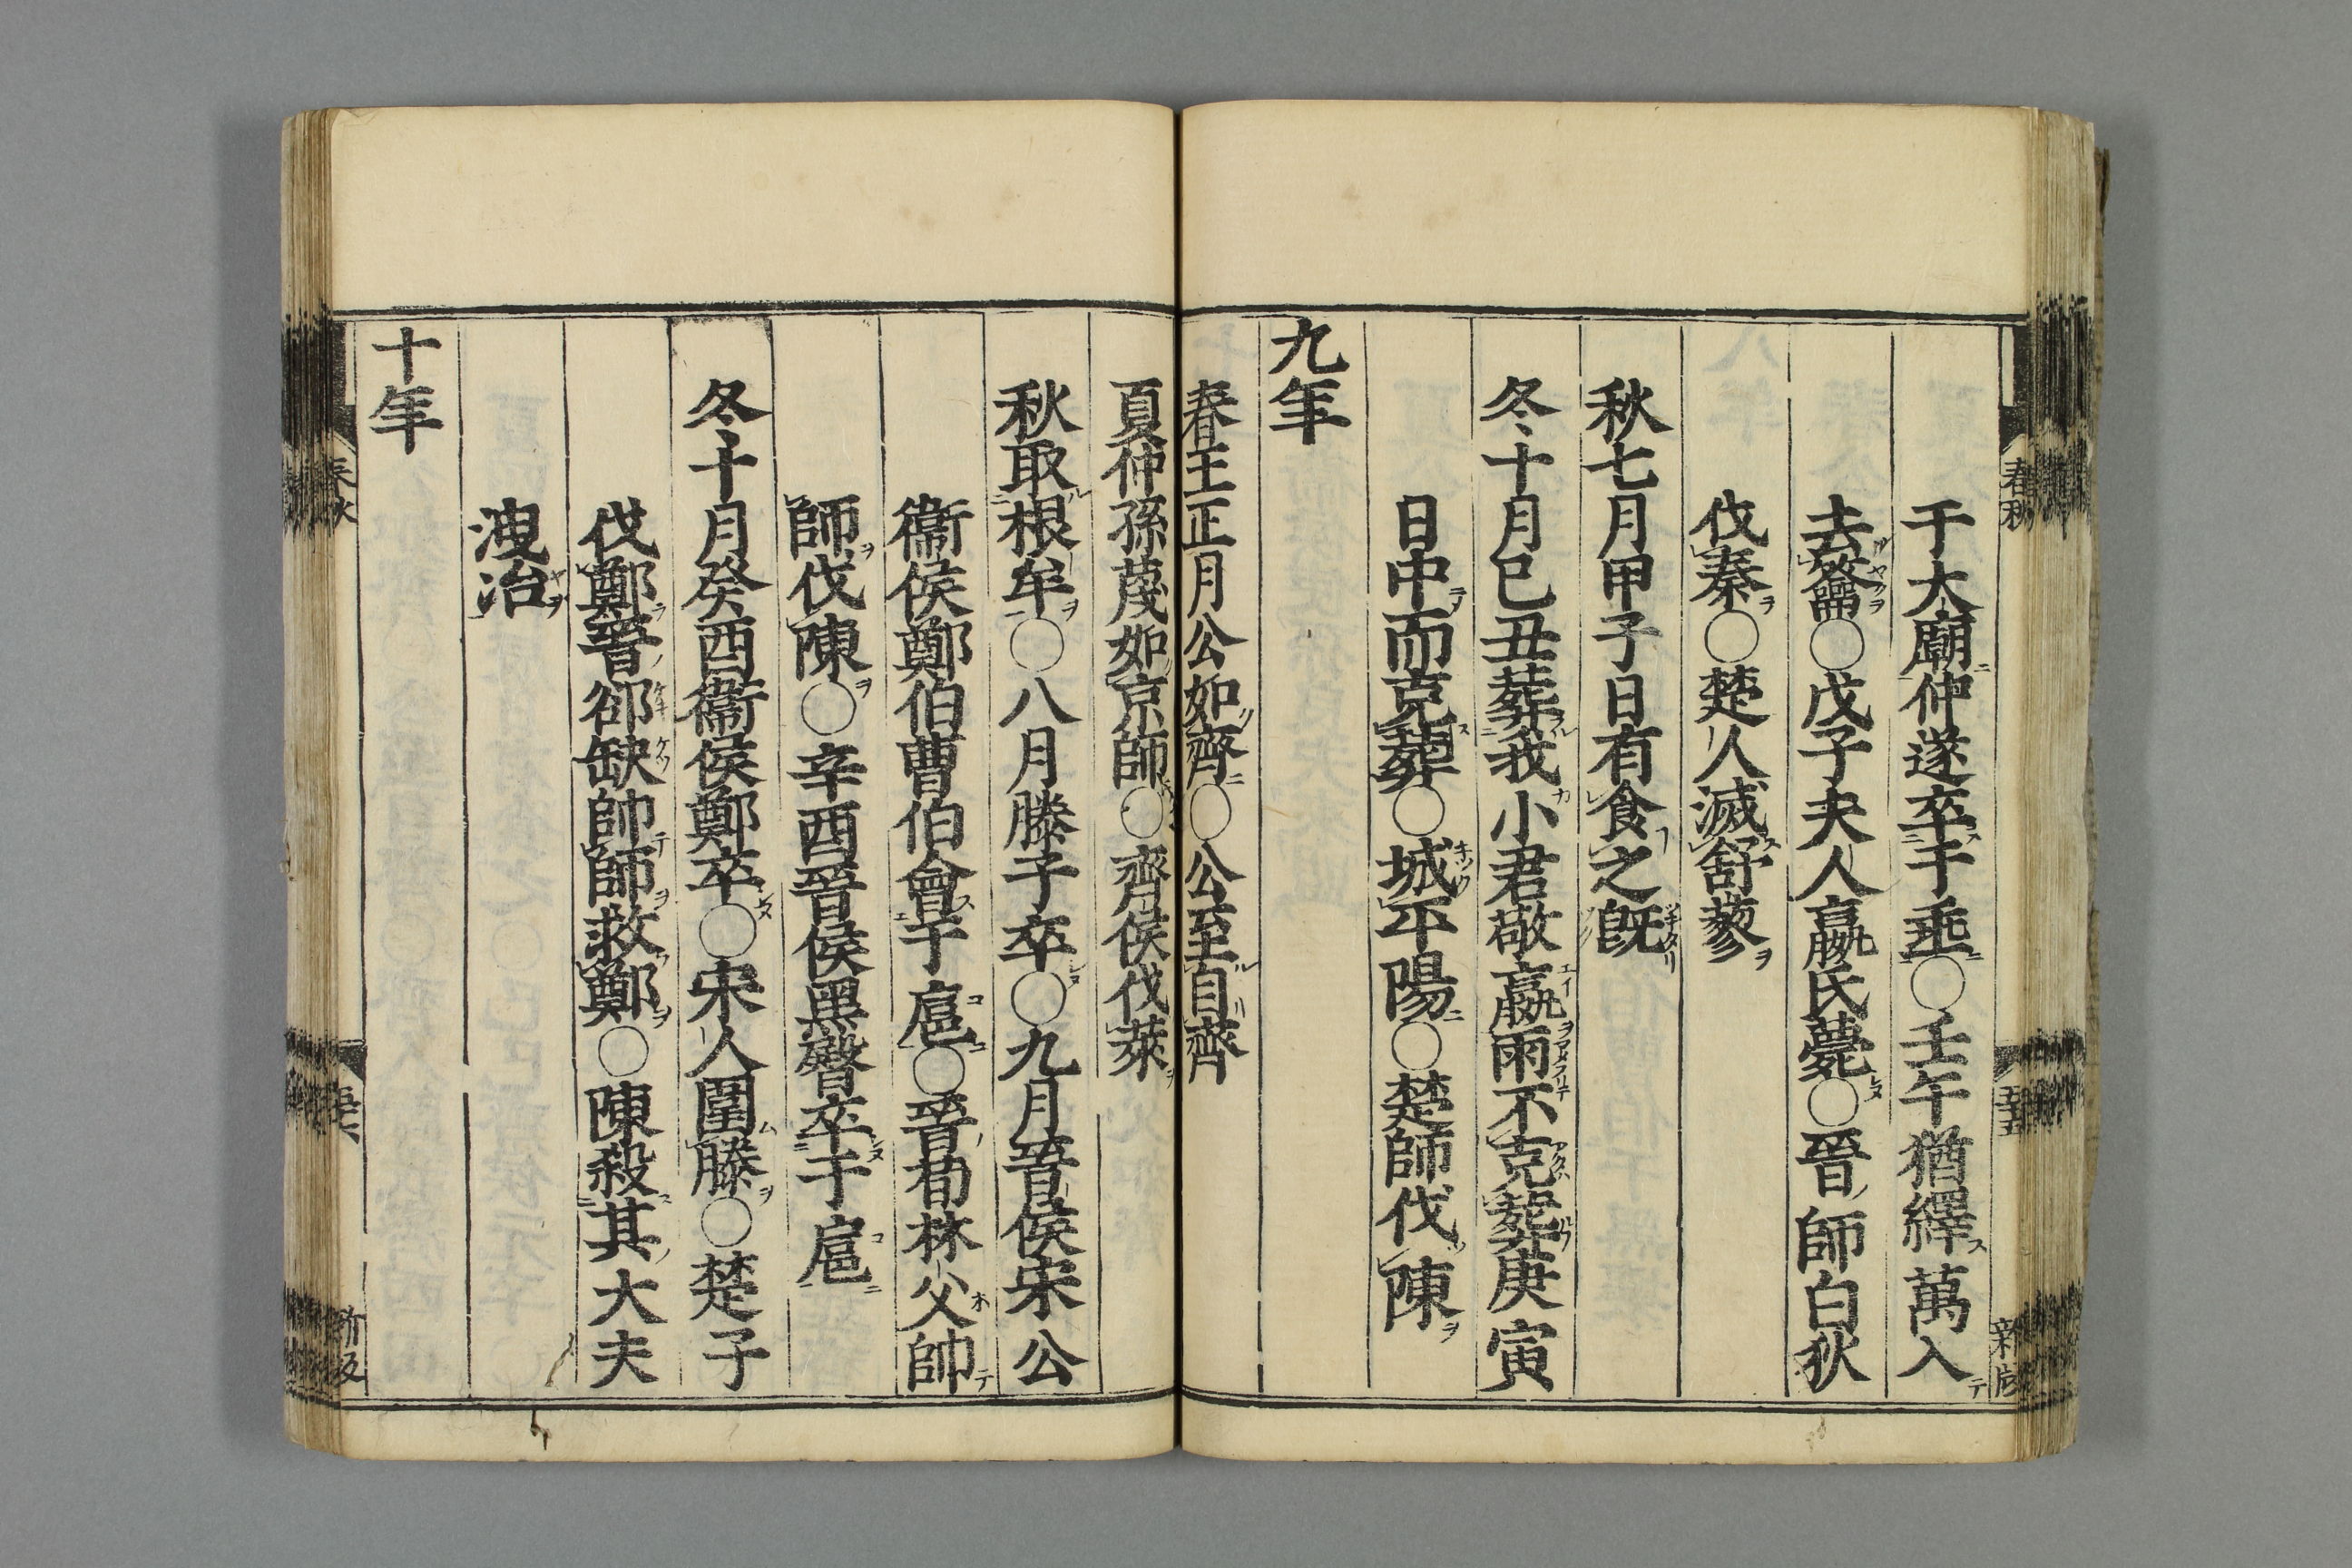 于大廟仲遂卒于垂○壬午猶繹萬入
去籥○戊子夫人嬴氏薨○晉師白狄
伐秦○楚人滅舒蓼
秋七月甲子日有食之既
冬十月己丑葬我小君敬嬴雨不克葬庚寅
日中而克葬○城平陽○楚師伐陳
九年
春王正月公如齊○公至自齊
夏仲孫蔑如京師○齊侯伐萊
秋取根牟○八月滕子卒○九月晉侯宋公
衞侯鄭伯曹伯會于扈○晉荀林父帥
師伐陳○辛酉晉侯黑臀卒于扈
冬十月癸酉衞侯鄭卒○宋人圍滕○楚子
伐鄭晉郤缺帥師救鄭○陳殺其大夫
洩冶
十年
春秋